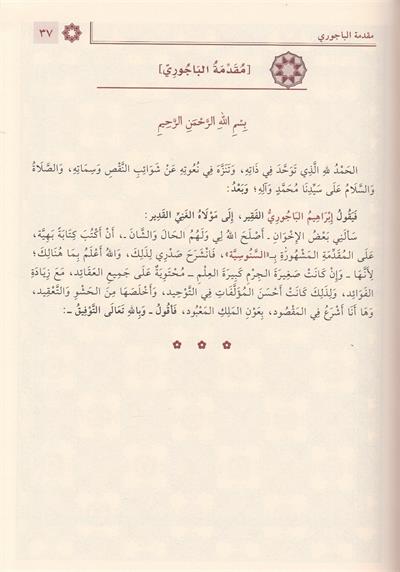 مقدمة الباجوري
٣٧
[مُقَدِّمَةُ البَاجُورِيّ]
بِسْمِ اللهِ الرَّحْمَنِ الرَّحِيمِ
الحَمْدُ للهِ الَّذِي تَوَحَّدَ فِي ذَاتِهِ، وَتَنَزَّهَ فِي نُعُوتِهِ عَنْ شَوَائِبِ النَّقْصِ وَسِمَاتِهِ، وَالصَّلَاةُ
وَالسَّلَامُ عَلَى سَيِّدِنَا مُحَمَّدٍ وَآلِهِ؛ وَبَعْدُ:
فَيَقُولُ إِبْرَاهِيمُ البَاجُورِيُّ الفَقِير، إِلَى مَوْلَاهُ الغَنِيِّ القَدِير:
سَأَلَنِي بَعْضُ الإِخْوَانِ ـ أَصْلَحَ اللهُ لِي وَلَهُمُ الحَالَ وَالشَّانَ ـ، أَنْ أَكْتُبَ كِتَابَةً بَهِيَّة،
عَلَى المُقَدِّمَةِ المَشْهُورَةِ بِـ«السَّنُوسِيَّة»، فَانْشَرَحَ صَدْرِي لِذَلِكَ، وَاللهُ أَعْلَمُ بِمَا هُنَالِكَ؛
لِأَنَّهَا ـ وَإِنْ كَانَتْ صَغِيرَةَ الجِرْمِ كَبِيرَةُ العِلْمِ ـ مُحْتَوِيَةٌ عَلَى جَمِيعِ العَقَائِد، مَعَ زِيَادَةِ
الفَوَائِد، وَلِذَلِكَ كَانَتْ أَحْسَنَ المُؤَلَّفَاتِ فِي التَّوْحِيد، وَأَخْلَصَهَا مِنَ الحَشْوِ وَالتَّعْقِيد،
وَهَا أَنَا أَشْرَعُ فِي المَقْصُود، بِعَوْنِ المَلِكِ المَعْبُود، فَأَقُولُ ـ وَبِاللهِ تَعَالَى التَّوْفِيقُ ـ: